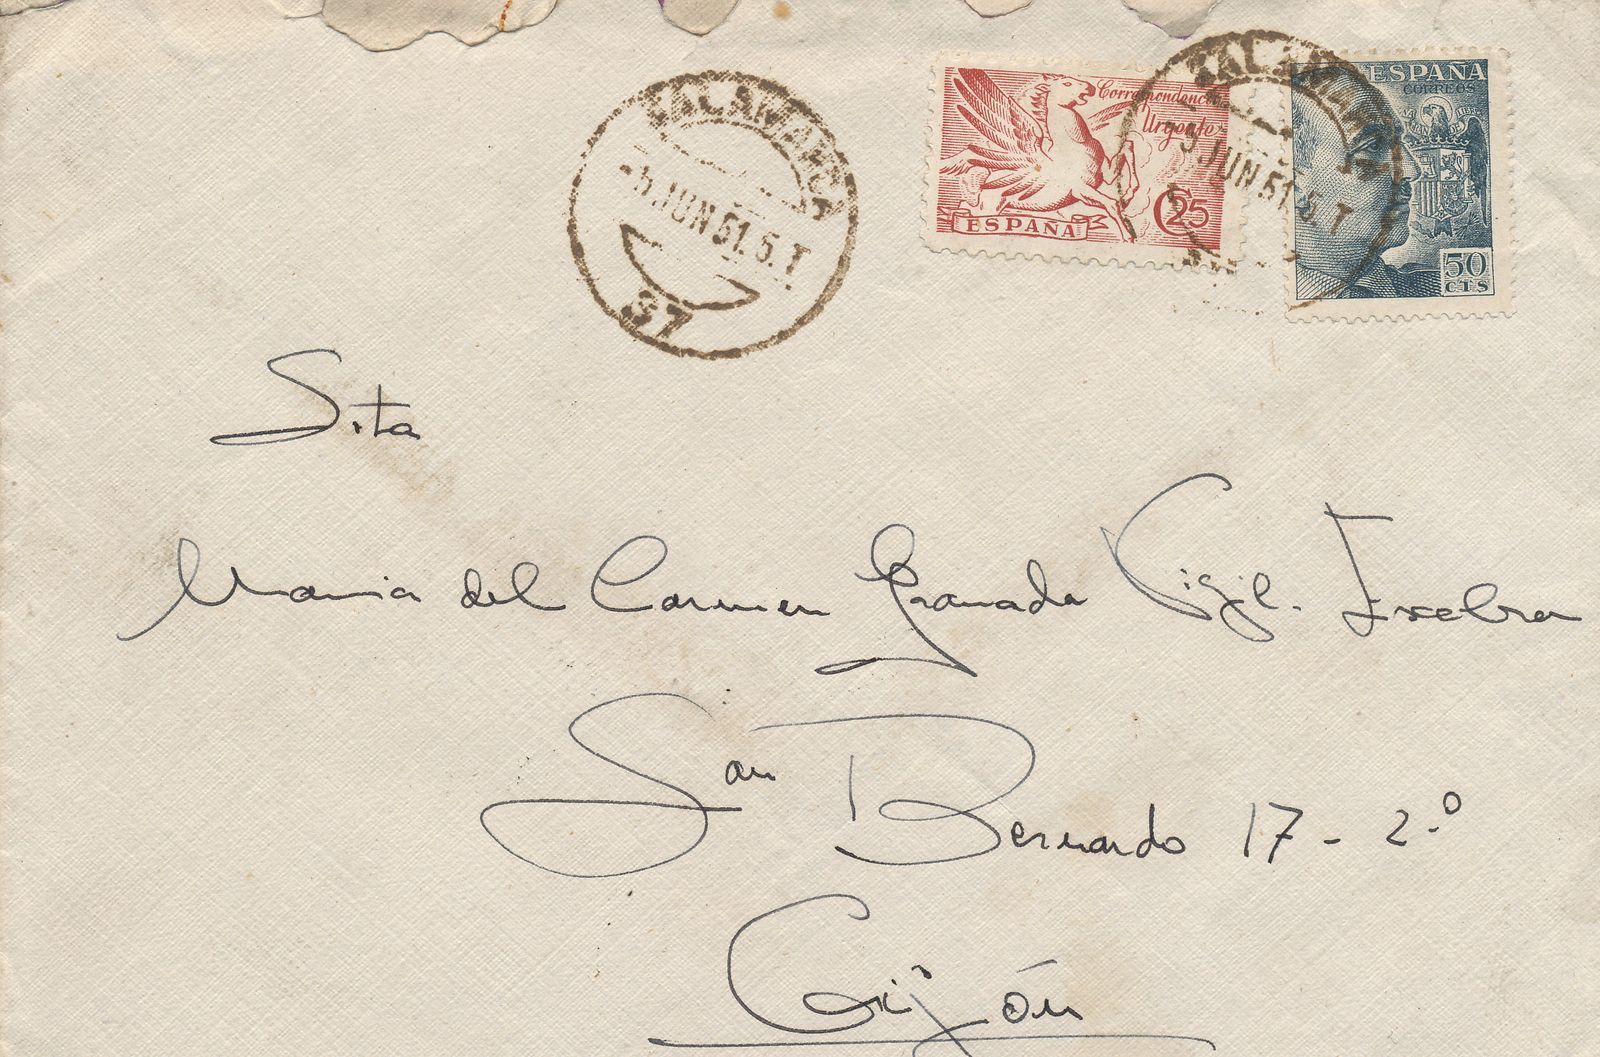 SALAMANCA
-5 JUN 51. 5. T
37
Correspondencia
Urgente
C25
ESPAÑA
SALAMANCA
JUN 51. 5. T
ESPAÑA
CORREOS
50
CTS
Srta
Maria del Carmen Granada Vigil-Escalera
San Bernardo 17 - 2.º
Gijón